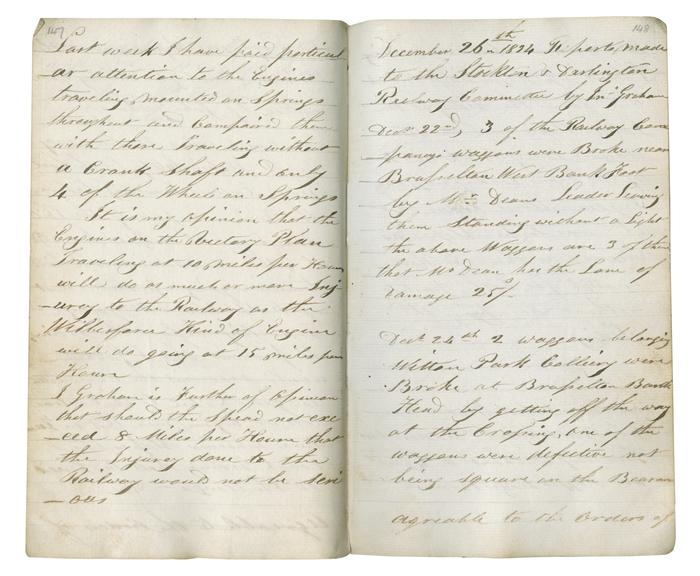 147
Last week I have paid particul
ar attention to the Engines
traveling mounted on Springs
throughout and Compaired them
with those Traveling without
a Crank Shaft and only
4 of the Wheels on Springs
It is my opinion that the
Engines on the Rectory Plan
Traveling at 10 miles per Hour
will do as much or more Inj
urey to the Railway as the
Wilberforce Kind of Engine
will do going at 15 miles per
Hour
J Graham is Further of Opinion
that should the Spead not exc
eed 8 Miles per Houre that
the Injurey done to the
Railway would not be seri
ous
148
December 26th 1834 Reports made
to the Stockton & Darlington
Railway Committee by Jno Graham
Decr 22nd, 3 of the Railway Com
panys waggons were Broke near
Brusselton West Bank Foot
by Mr Deans Leader Leaving
them Standing without a Light
the above Waggons are 3 of them
that Mr Dean has the Lone of
Damage 25/-
Decr 24th 2 waggons belonging
Witton Park Colliery were
Broke at Brusselton Bank
Head by getting off the way
at the Crossing, one of the
waggons were defective not
being square on the
agreable to the Orders of